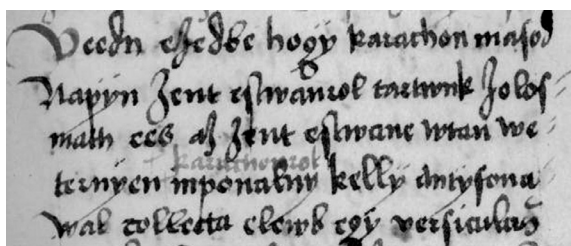 Veedn eʒedbe hogÿ karachon masod
Napÿn Zent estwanrol tartwnk Zolos⸗
math ees aʒ Zent estwane wtan we⸗
karachonrol
ternÿen mponalnÿ kellÿ antÿfona
wal collecta elewb egÿ versiculus